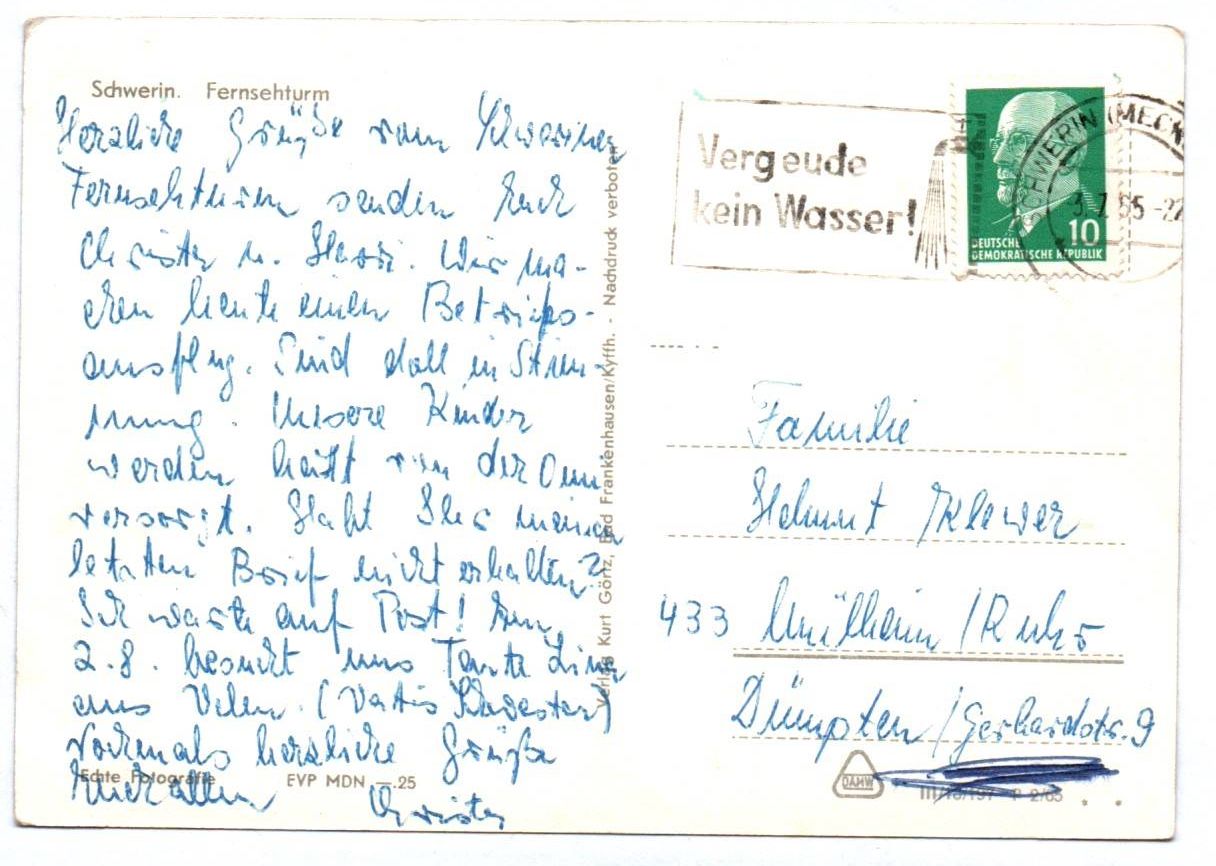 Schwerin. Fernsehturm
Herzliche Grüße vom Schweriner
Fernsehturm senden Euch
Christa u. Harri. Wir ma-
chen heute einen Betriebs-
ausflug. Sind doll in Stim-
mung. Unsere Kinder
werden heute von der Omi
versorgt. Habt Ihr meinen
letzten Brief nicht erhalten?
Ich warte auf Post! Am
2.8. besucht uns Tante
aus Velen. (Vatis Schwester)
Nochmals herzliche Grüße
Euch allen Christa
Echte Fotografie EVP MDN —.25
Verlag Kurt Göritz, Bad Frankenhausen/Kyffh. - Nachdruck verboten
Vergeude
kein Wasser!
SCHWERIN (MECK
65 -22
10
DEUTSCHE
DEMOKRATISCHE REPUBLIK
Familie
Helmut Klewer
433 Mülheim/Ruhr
Dümpten/Gerhardstr. 9
DAMW
III/18/197 P 2/65